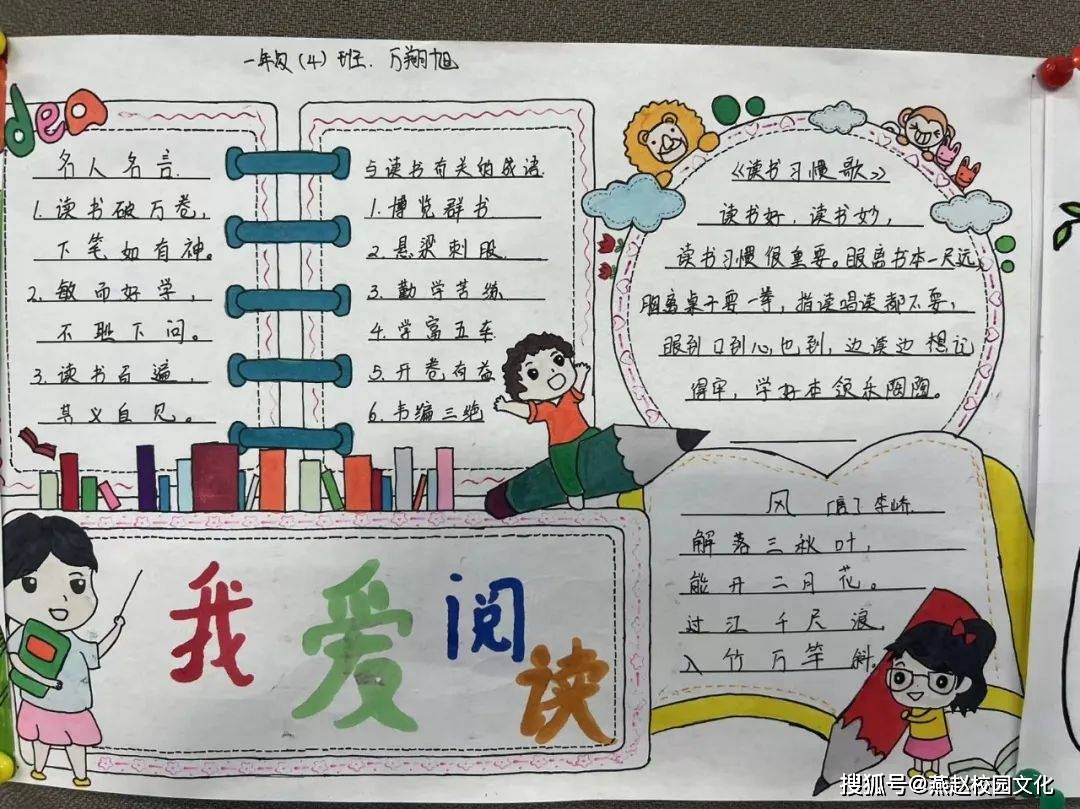 一年级(4)班.万翔旭
dea
名人名言.
1.读书破万卷,
下笔如有神。
2.敏而好学,
不耻下问。
3.读书百遍,
其义自见。
与读书有关的成语.
1.博览群书.
2.悬梁刺股.
3.勤学苦练
4.学富五车
5.开卷有益
6.韦编三绝
《读书习惯歌》
读书好,读书妙,
读书习惯很重要。眼离书本一尺远,
胸离桌子要一拳,指读唱读都不要,
眼到口到心也到,边读边想记
得牢,学好本领乐陶陶。
我爱阅读
风 [唐] 李峤.
解落三秋叶,
能开二月花。
过江千尺浪,
入竹万竿斜。
搜狐号@燕赵校园文化